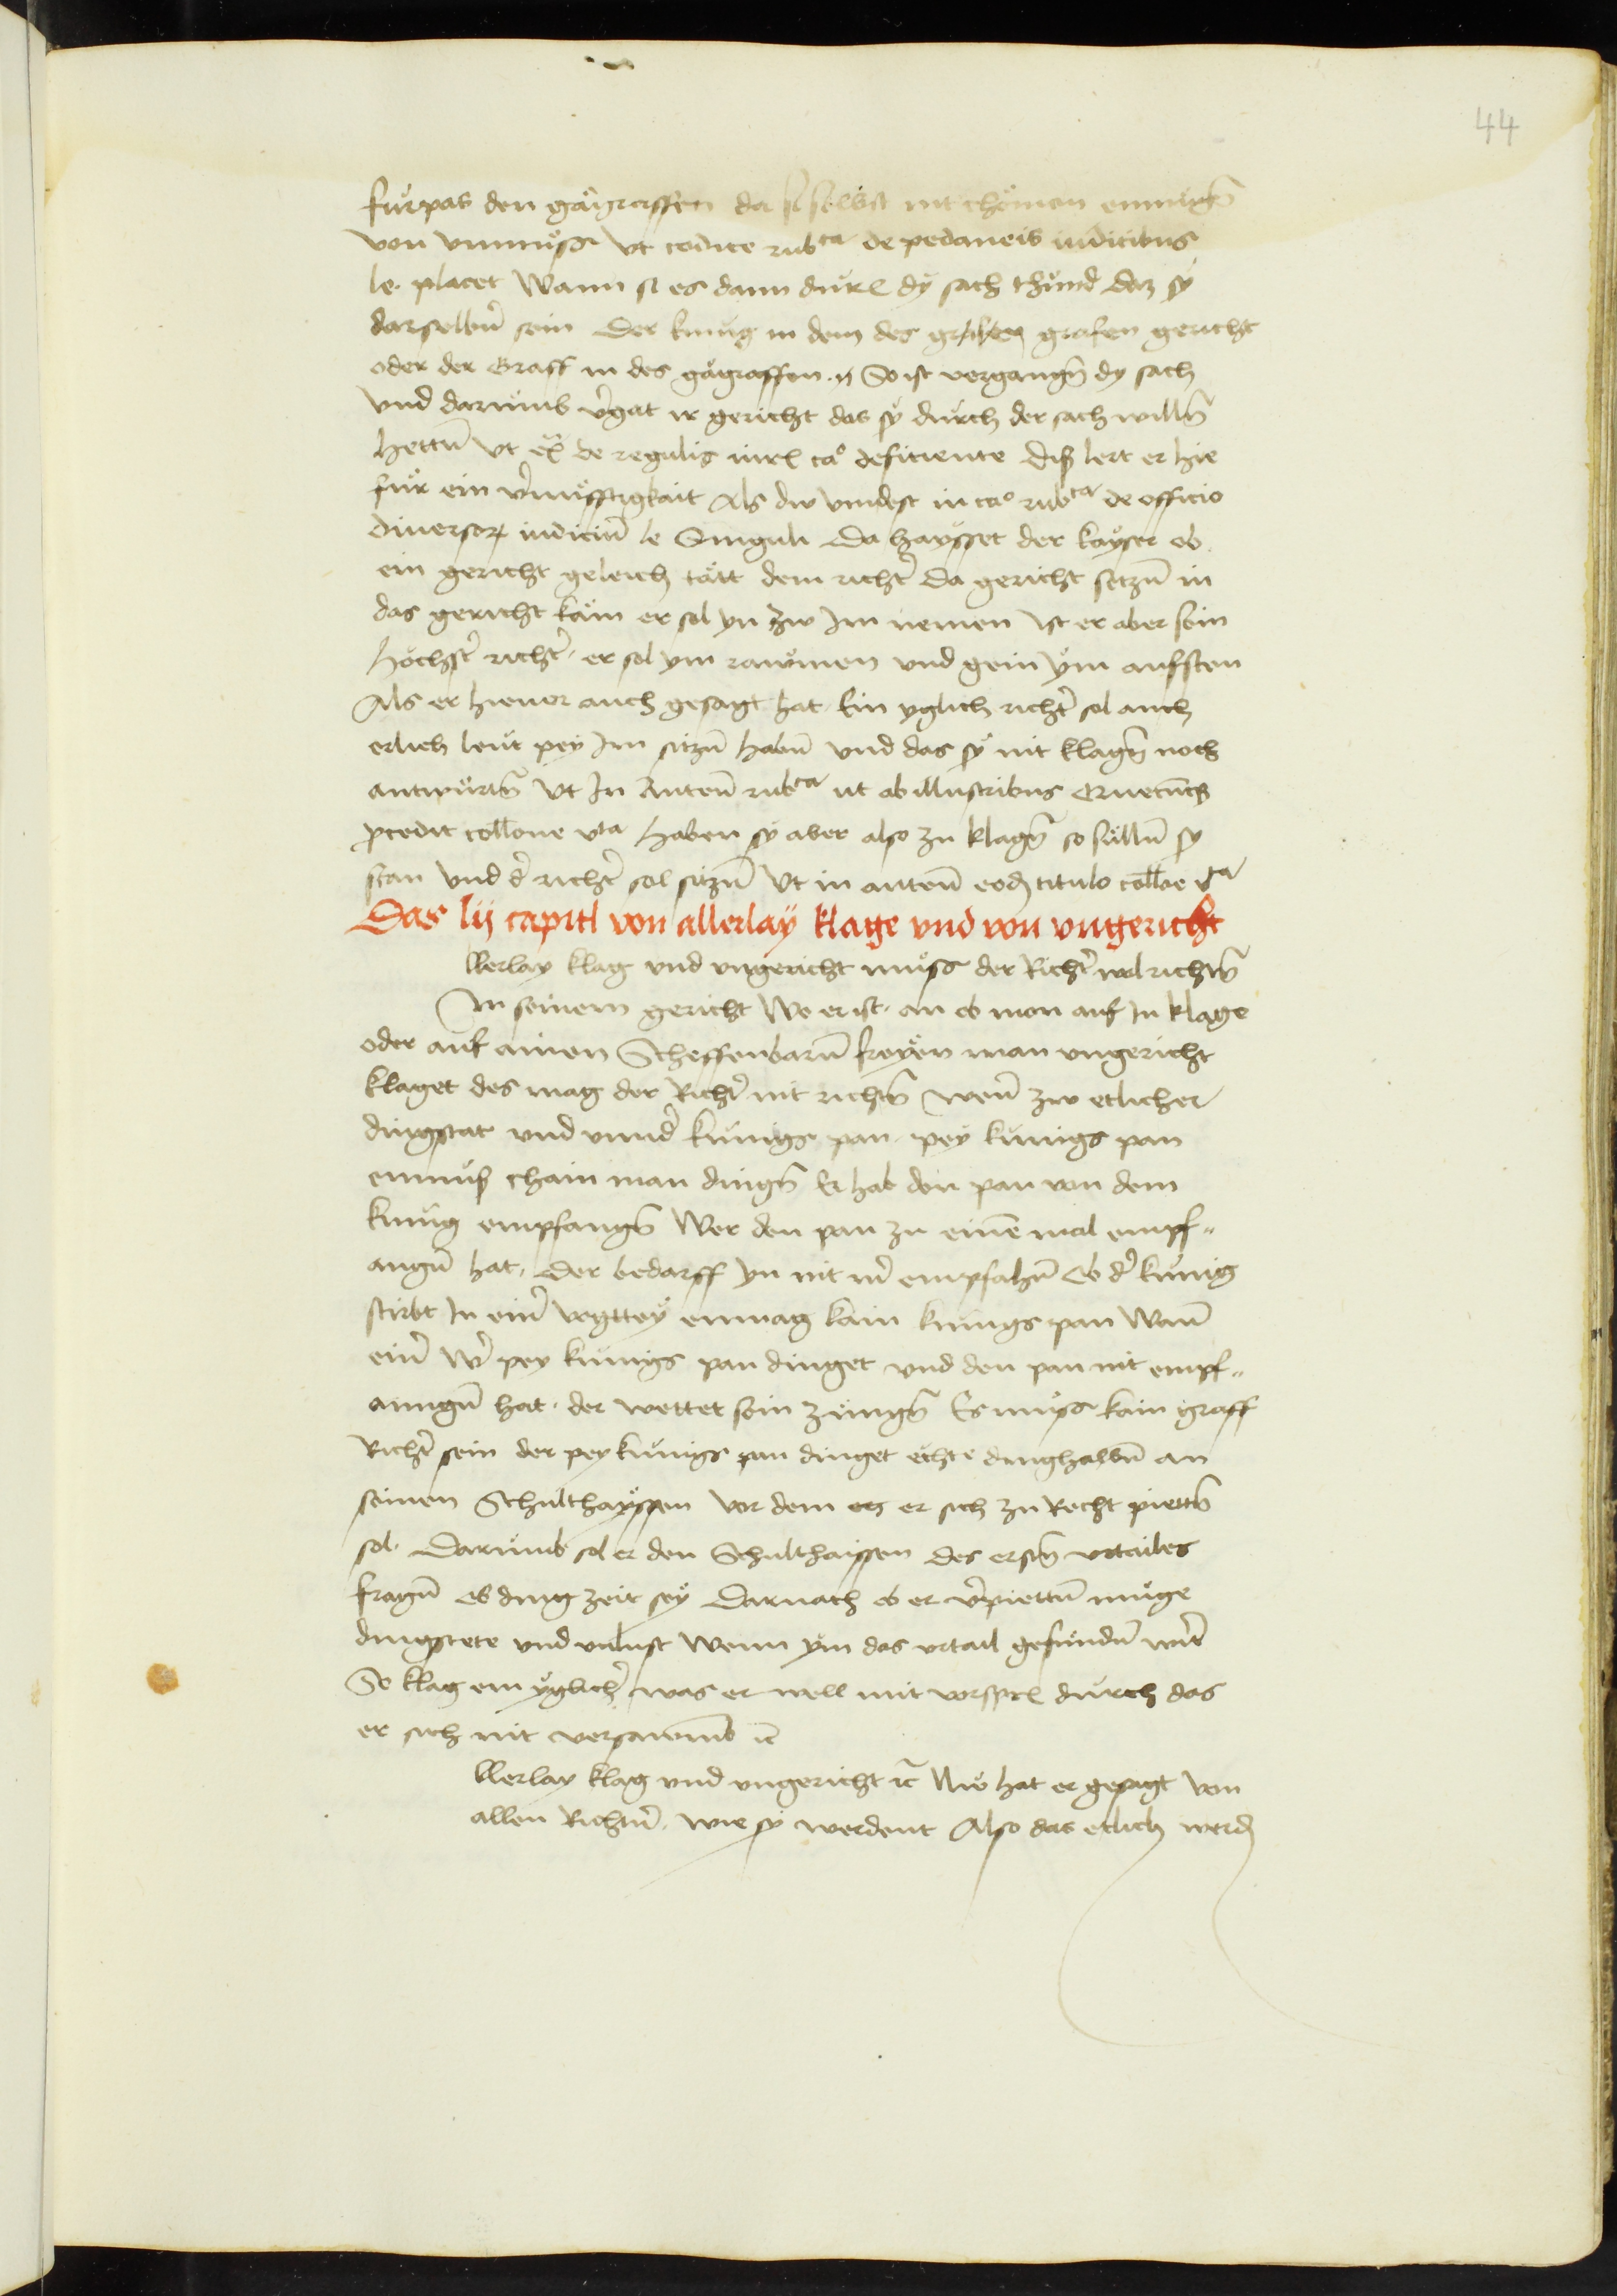 44
furpas den gägraffen da si selbst nit chömen enmugn̄
von vnmuͤss vt codice rubca de pedaneis iudicibus
le. placet Wann si es dann durch dy sach thund daz sy
darselbn̄ sein Der kunig in dem des grafen gericht
oder der Graff in des gägraffen So ist vergangn̄ dy sach
vnd darumb v̄gat ir gericht das sy durch der sach willn̄
hettn̄ vt ex̄ de regulis iur cao deficiente Diß lert er hie
fur ein v̄nuͤfftigkait Als dw vindest in co rubca de officio
diuersor iudiciū le Singuli Da haysset der kayser ob
ein gericht geleich tätt dem richt̄ Da gericht setzn̄ in
das gericht käm er sol yn zw Im nemen ist er aber sein
höchst̄ richt̄. er sol ym rawmen vnd gein ym aufsten
Als er hieuor auch gesagt hat Ein yglich richt̄ sol auch
erlich leut pey Im sitzn̄ habn̄ vnd das sy nit klagn̄ noch
antwurtn̄ Vt In Auten̄ rubca ut ab illustribus
p̄cedit collone vta haben sy aber also zu klagn̄ so sulln̄ sy
stan vnd d̄ richt̄ sol sitzn̄ Vt in auten̄ eod titulo colloe vta
Das lij capitl von allerlay klage vnd von vngericht
llerlay klag vnd vngericht muͤss der Richt̄ wol richtn̄
In seinem gericht Wo er ist. an ob man auf In klage
oder auf ainen Scheffenbarn̄ freyen man vngericht
klaget des mag der Richt̄ nit richtn̄ wen̄ zw etlicher
dingstat vnd vnnd̄ kunigs pan. pey kunigs pan
enmuß chain man dingn̄ Er hab den pan von dem
kunig empfangn̄ Wer den pan zu einē mal empf"
angn̄ hat. Der bedarff yn nit m̄ empfahn̄ Ob d̄ kunig
stirbt In ein̄ vogttey enmag kain kunigs pan Wan̄
ein̄ w̄ pey kunigs pan dinget vnd den pan nit empf"
anngn̄ hat. der wettet sein zungn̄ Es muͤss kain graff
Richt̄ sein der pey kunigs pan dinget echte dinghalbn̄ an
seinen Schulthayssen vor dem er sich zu Recht piettn̄
sol. Darumb sol er den Schulthaissen des erstn̄ vrtailes
fragn̄ ob ding zeit sey Darnach ob er v̄piettn̄ muge
dingstete vnd vnlust Wenn ym das vrtail gefundn̄ wirt
So klag ein yglich̄ was er well mit vorsprech durch das
er sich nit versawmb ꝛc
llerlay klag vnd vngericht ꝛc Nw hat er gesagt von
allen Richtn̄. wie sy werdent Also das etlich werd